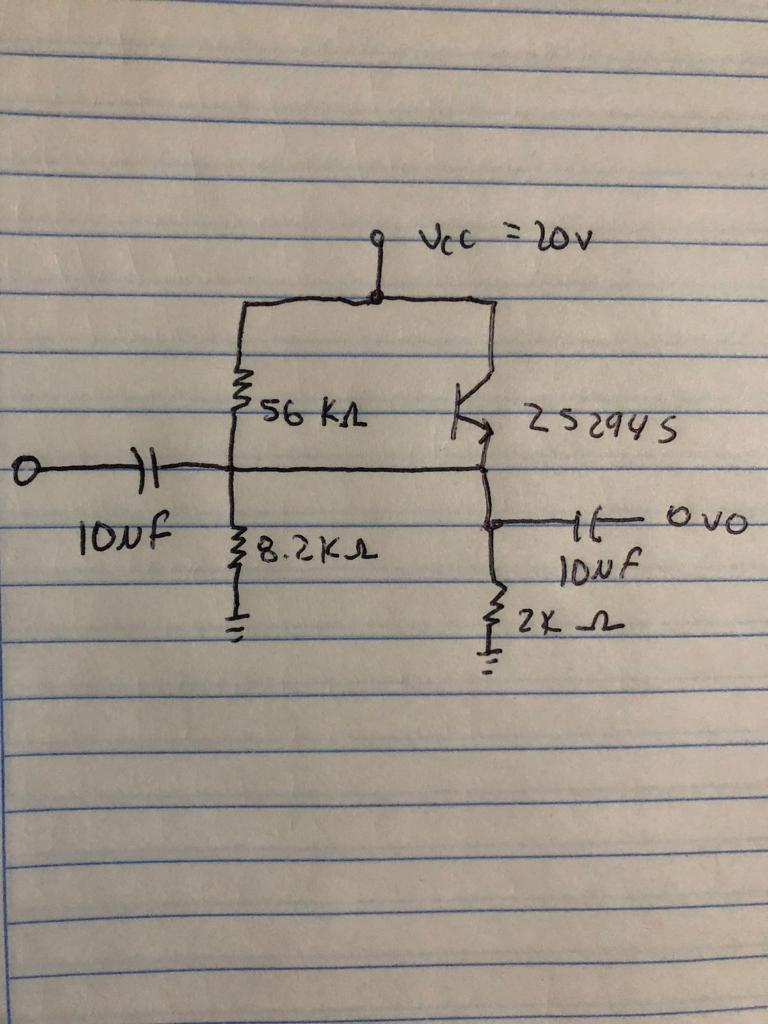 Vcc = 20V
56 KΩ
2S2945
10µF
8.2KΩ
Vo
10µF
2K Ω